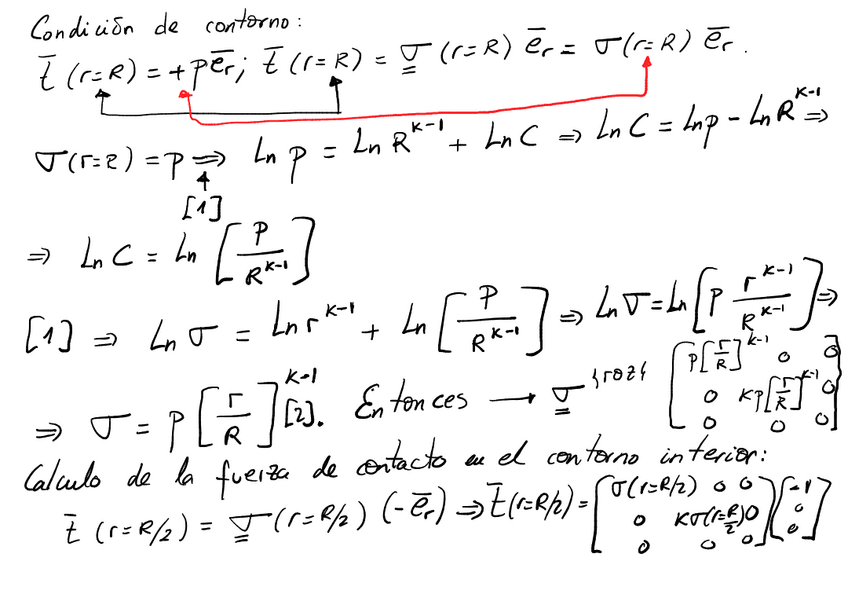 Condición de contorno:
t̄ (r=R) = + p ē_r; t̄ (r=R) = σ̳ (r=R) ē_r = σ(r=R) ē_r.
σ(r=R) = p ⇒ Ln p = Ln R^{K-1} + Ln C ⇒ Ln C = Ln p - Ln R^{K-1} ⇒
[1]
⇒ Ln C = Ln [P / R^{K-1}]
[1] ⇒ Ln σ = Ln r^{K-1} + Ln [P / R^{K-1}] ⇒ Ln σ = Ln [P r^{K-1} / R^{K-1}] ⇒
⇒ σ = p [r / R]^{K-1} [2]. Entonces → σ̳ {rθz} [p[r/R]^{K-1} 0 0 ; 0 Kp[r/R]^{K-1} 0 ; 0 0 0]
Calculo de la fuerza de contacto en el contorno interior:
t̄ (r=R/2) = σ̳ (r=R/2) (-ē_r) ⇒ t̄(r=R/2) = [σ(r=R/2) 0 0 ; 0 Kσ(r=R/2) 0 ; 0 0 0] [-1 ; 0 ; 0]